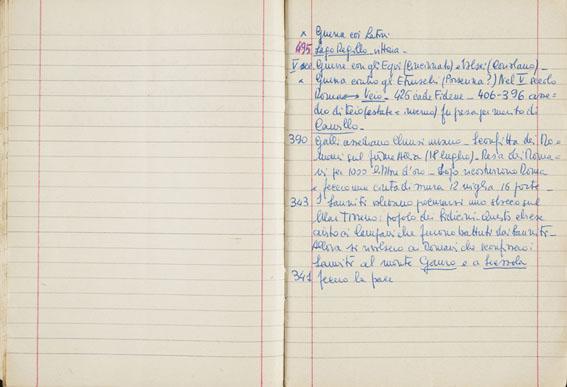 x Guerra coi Latini
495 Lago Regillo vittoria -
V sec. Guerre con gli Equi (Cincinnato) e Volsci (Coriolano) -
x Guerra contro gli Etruschi (Porsenna?) Nel V secolo
Roma → Veio - 426 cade Fidene - 406-396 asse-
dio di Veio (estate e inverno) fu presa per merito di
Camillo -
390 Galli assediano Chiusi - Sconfitta dei Ro-
mani sul fiume Allia (18 luglio) - Resa dei Roma-
ni per 1000 libbre d'oro - Dopo ricostruirono Roma
e fecero una cinta di mura 12 miglia 16 porte -
343 I Sanniti volevano procurarsi uno sbocco sul
Mar Tirreno: popolo dei Sidicini. Questi chiese
aiuto ai Campani che furono battuti dai Sanniti -
Allora si rivolsero ai Romani che sconfissero i
Sanniti al monte Gauro e a Suessola
341 fecero la pace